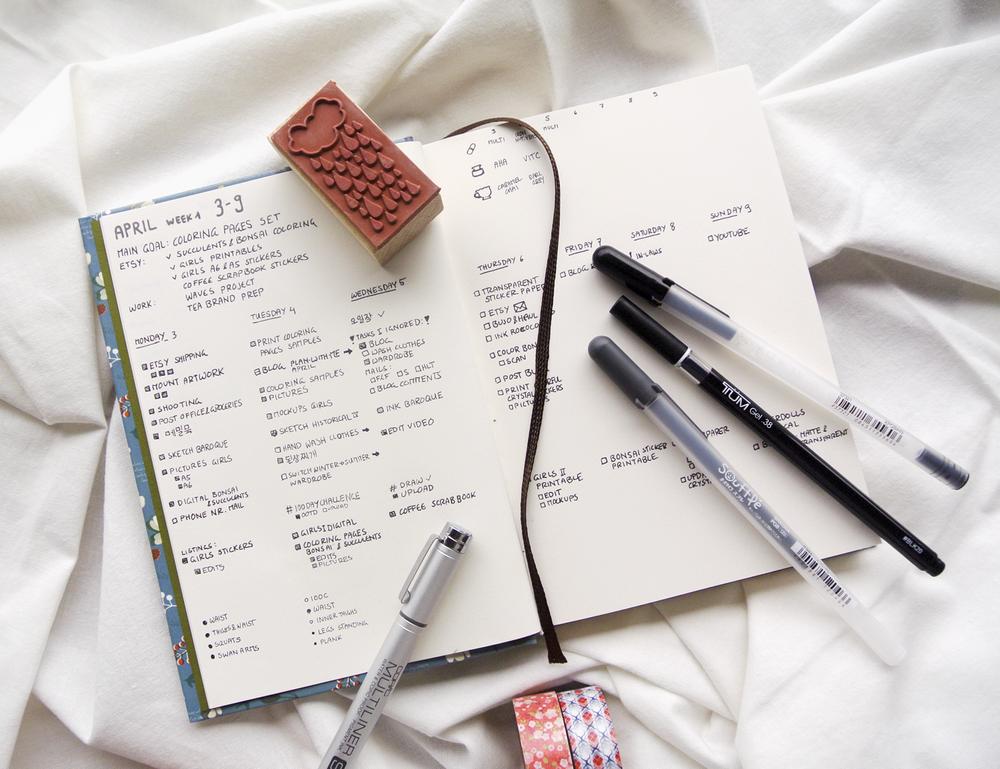 APRIL WEEK 1 3-9
MAIN GOAL: COLORING PAGES SET
ETSY: ✓ SUCCULENTS & BONSAI COLORING
✓ GIRLS PRINTABLES
✓ GIRLS A6 & A5 STICKERS
COFFEE SCRAPBOOK STICKERS
WORK: WAVES PROJECT
TEA BRAND PREP
MONDAY 3
ETSY SHIPPING
MOUNT ARTWORK
SHOOTING
POST OFFICE & GROCERIES
SKETCH BAROQUE
PICTURES GIRLS
A5
A6
DIGITAL BONSAI
& SUCCULENTS
PHONE N.R. MAIL
LISTINGS:
GIRLS STICKERS
EDITS
WAIST
THIGHS & WAIST
SQUATS
SWAN ARMS
TUESDAY 4
PRINT COLORING
PAGES SAMPLES
BLOG PLAN-WITH-ME →
APRIL
COLORING SAMPLES
PICTURES
MOCKUPS GIRLS
SKETCH HISTORICAL II
HAND WASH CLOTHES →
된장찌개
SWITCH WINTER → SUMMER →
WARDROBE
#100DAYCHALLENGE
OOTD
GIRLS II DIGITAL
COLORING PAGES
BONSAI & SUCCULENTS
EDITS
PICTURES
100C
WAIST
INNER THIGHS
LEGS STANDING
PLANK
WEDNESDAY 5
✓
TASKS I IGNORED:
BLOG
WASH CLOTHES
WARDROBE
MAILS:
BLOG COMMENTS
INK BAROQUE
EDIT VIDEO
# DRAW ✓
UPLOAD
COFFEE SCRAPBOOK
3 5 6 7 8 9
MULTI MULTI
AHA VIT C
CARAMEL CHAI EARL GREY
THURSDAY 6
TRANSPARENT
STICKER PAPER
ETSY
BUJO & HAUL
INK ROCOCO
COLOR BON
SCAN
POST BL
PRINT
CRYSTAL
PICTU
GIRLS II
PRINTABLE
EDIT
MOCKUPS
FRIDAY 7
BLOG
BONSAI STICKER
PRINTABLE
SATURDAY 8
IN-LAWS
PAPER
UPDA
CRYST
SUNDAY 9
YOUTUBE
ERDOLLS
MATTE &
TRANSPARENT
TRŪM Gel .38
SOUFFLÉ
COPIC
MULTILINER